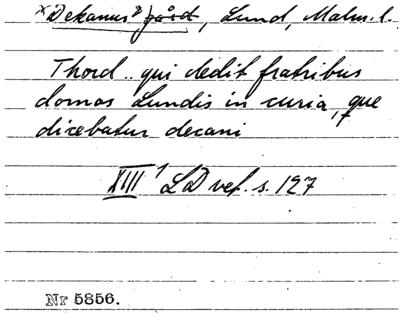 *Dekanus* gård, Lund, Malm. l.
Thord.. qui dedit fratribus
domos Lundis in curia, que
dicebatur decani
XIII¹ LD vet. s. 127
Nr 5856.